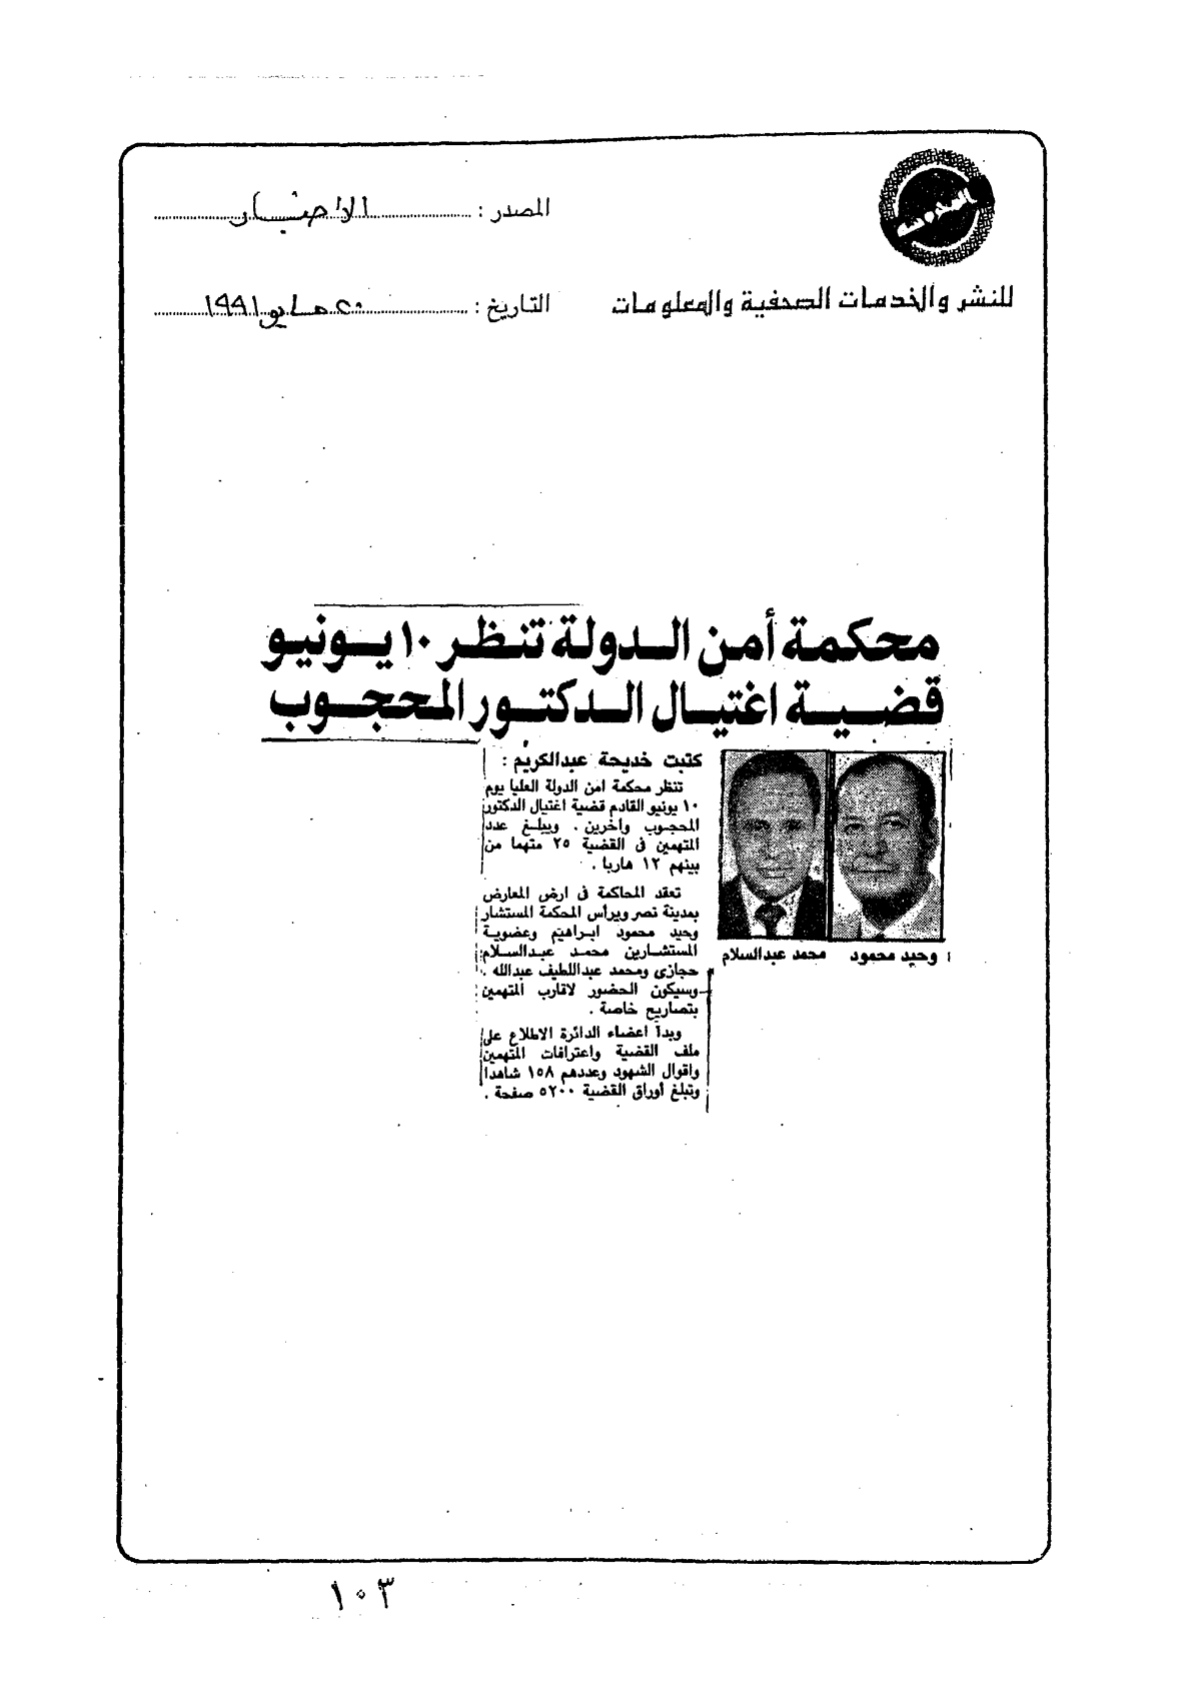 المصدر : الاخبار
للنشر والخدمات الصحفية والمعلومات
التاريخ : ٢٠ مايو ١٩٩١
محكمة أمن الدولة تنظر ١٠ يونيو
قضية اغتيال الدكتور المحجوب
كتبت خديحة عبدالكريم :
تنظر محكمة امن الدولة العليا يوم
١٠ يونيو القادم قضية اغتيال الدكتور
المحجوب وأخرين . ويبلغ عدد
المتهمين فى القضية ٢٥ متهما من
بينهم ١٢ هاربا .
تعقد المحاكمة فى ارض المعارض
بمدينة نصر ويرأس المحكمة المستشار
وحيد محمود ابراهيم وعضوية
المستشارين محمد عبدالسلام
حجازى ومحمد عبداللطيف عبدالله .
وسيكون الحضور لاقارب المتهمين
بتصاريح خاصة .
وبدأ اعضاء الدائرة الاطلاع على
ملف القضية واعترافات المتهمين
واقوال الشهود وعددهم ١٥٨ شاهدا
وتبلغ أوراق القضية ٥٢٠٠ صفحة .
وحيد محمود
محمد عبدالسلام
١٠٣